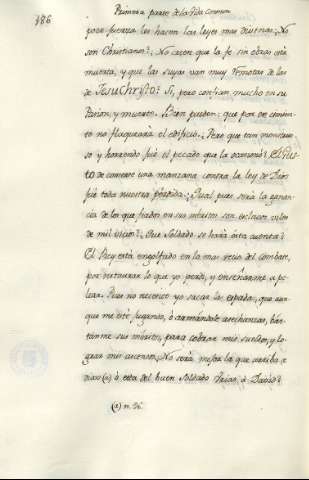 186
Primera parte de la Vida Comun
poco fuerza les hacen las leyes mas divinas; No
son Christianos? No creen que la fe sin obras está
muerta, y que las suyas van muy remotas de las
de Jesu Christo? Si, pero confian mucho en su
Pasion, y muerte. Bien pueden: que por ese cimien-
to no flaqueará el edificio. Pero que tan monstruo-
so y horrendo fué el pecado que la ocasionó? El gus-
to de comerse una manzana contra la ley de Dios
fué toda nuestra pérdida. ¿Qual pues será la ganan-
cia de los que fiados en sus meritos son esclavos viles
de mil vicios? Que Soldado se hará ésta cuenta?
El Rey está engolfado en lo mas recio del combate,
por restaurar lo que yo perdí, y enseñarme a pe-
lear. Pues no necesito yo sacar la espada, que aun-
que me esté jugando, ó armandole asechanzas, bas-
tanme sus meritos, para cobrar mis sueldos, y lo-
grar mis ascensos. No sería mejor la que arriba
(a) ó esta del buen Soldado Urias, á David?
(a) n. 26.